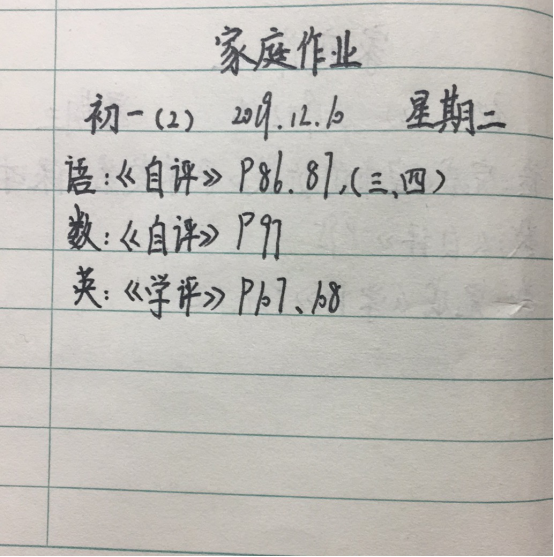 家庭作业
初一(2) 2019.12.10 星期二
语:《自评》P86.87,(三、四)
数:《自评》P97
英:《学评》P67、68